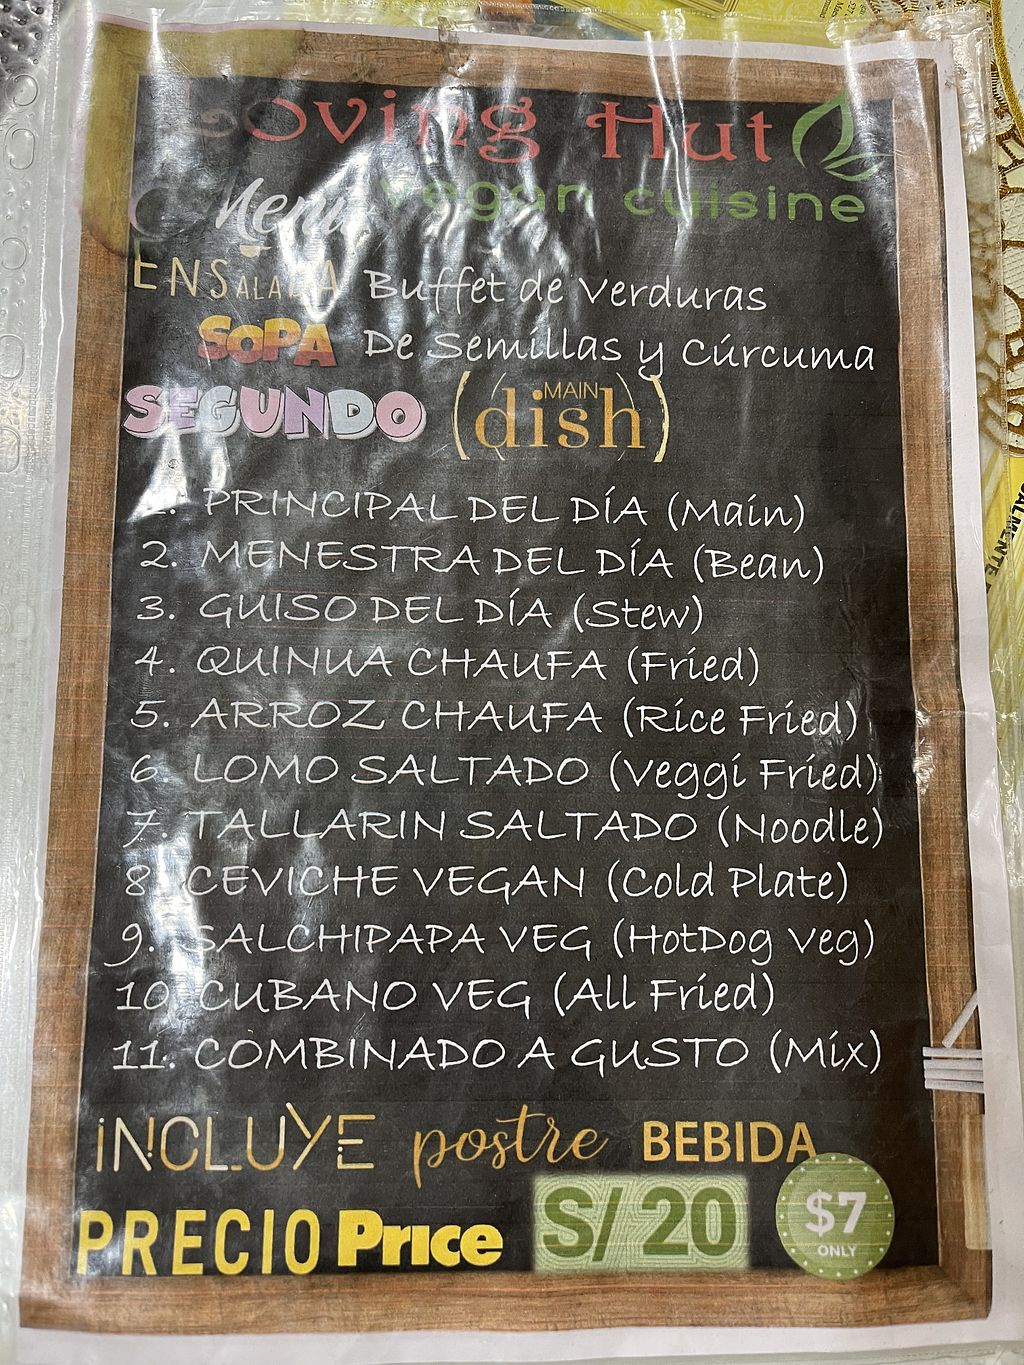 Loving Hut
vegan cuisine
Menú
ENSALADA Buffet de Verduras
SOPA De Semillas y Cúrcuma
SEGUNDO (MAIN dish)
1. PRINCIPAL DEL DÍA (Main)
2. MENESTRA DEL DÍA (Bean)
3. GUISO DEL DÍA (Stew)
4. QUINUA CHAUFA (Fried)
5. ARROZ CHAUFA (Rice Fried)
6. LOMO SALTADO (Veggi Fried)
7. TALLARIN SALTADO (Noodle)
8. CEVICHE VEGAN (Cold Plate)
9. SALCHIPAPA VEG (HotDog Veg)
10. CUBANO VEG (All Fried)
11. COMBINADO A GUSTO (Mix)
INCLUYE postre BEBIDA
PRECIO Price S/ 20 $7
ONLY